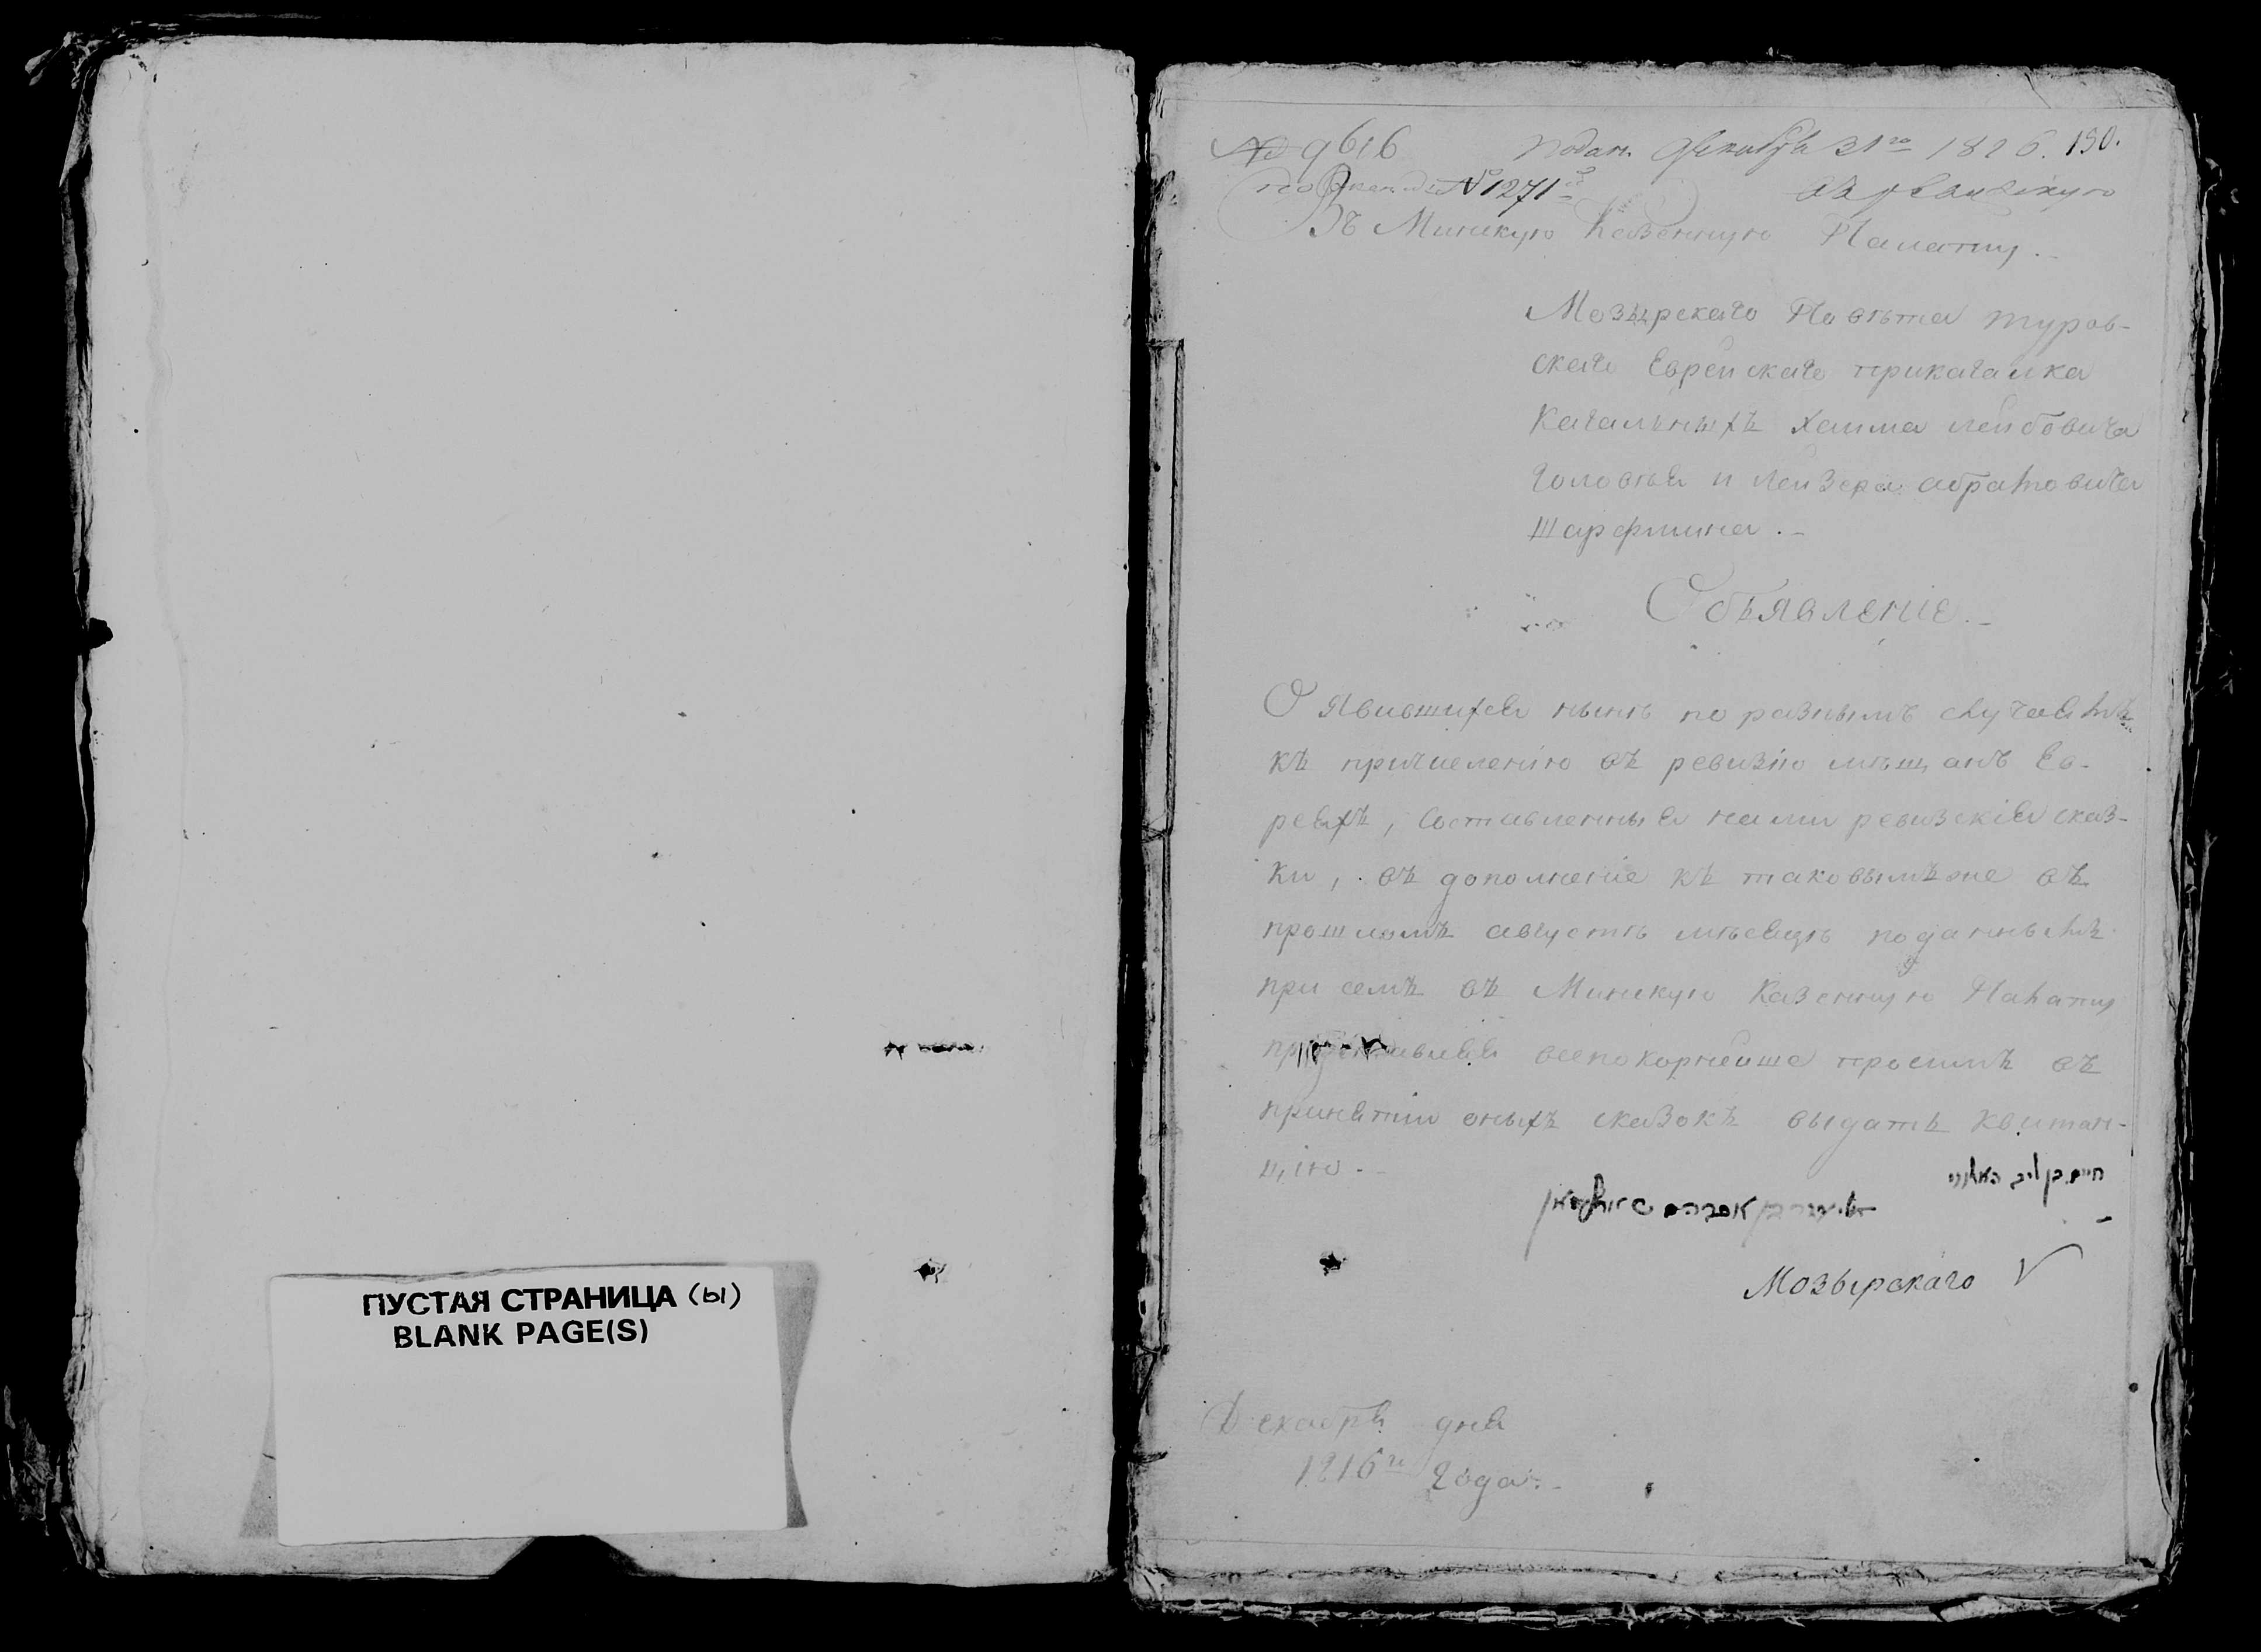 ПУСТАЯ СТРАНИЦА (ы)
BLANK PAGE(S)
№ 9616 Подан. Декабря 31го 1816. 150.
№ 1271
Въ Минскую Казенную Палату.
Мозырскаго Повѣта туров-
скаго Еврейскаго прикагалка
Кагальныхъ Хаима Лейбовича
Головѣя и Лейзера абрамовича
Шарфмана.
Объявленіе.
О явившихся нынѣ по разнымъ случаямъ
къ причисленію въ ревизію мѣщанъ Ев-
реяхъ, составленныя нами ревизскія сказ-
ки, въ дополненіе къ таковымъ же въ
прошломъ августѣ мѣсяцѣ поданнымъ
при семъ въ Минскую Казенную Палату
представляя всепокорнейше просимъ въ
принятіи оныхъ сказокъ выдать квитан-
цію.
חיים בן ליב
בן אברהם
Мозырскаго V
Декабря дня
1816го года.